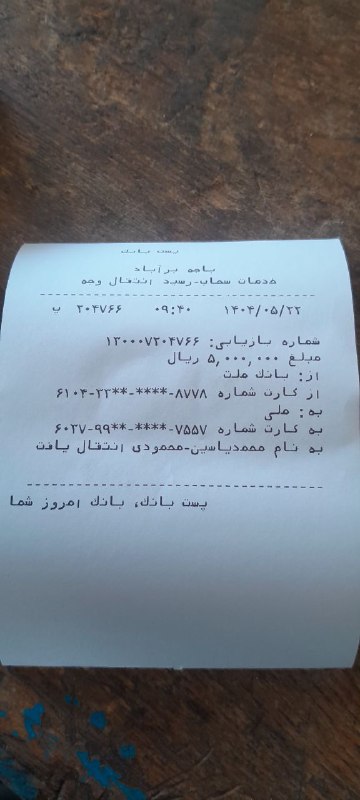 پست بانک
باجه برآباد
خدمات سحاب-رسید انتقال وجه
۱۴۰۴/۰۵/۲۲ ۰۹:۴۰ ۲۰۴۷۶۶ ب
شماره بازیابی: ۱۲۰۰۰۷۲۰۴۷۶۶
مبلغ ۵,۰۰۰,۰۰۰ ریال
از: بانک ملت
از کارت شماره ۶۱۰۴-۲۲**-****-۸۷۷۸
به: ملی
به کارت شماره ۶۰۲۷-۹۹**-****-۷۵۵۷
به نام محمدیاسین-محمودی انتقال یافت
پست بانک، بانک امروز شما